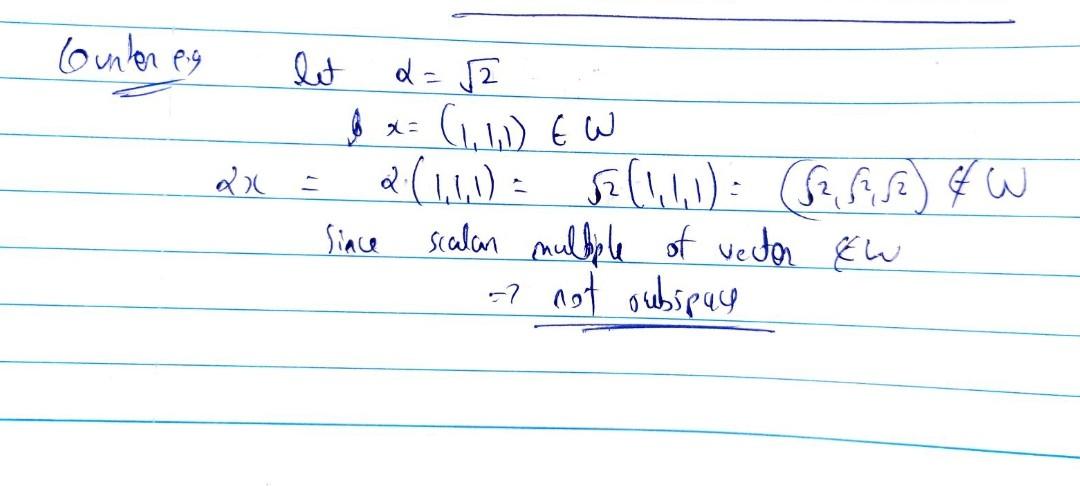 Counter eg let α = √2
& x = (1,1,1) ∈ W
αx = α·(1,1,1) = √2(1,1,1) = (√2,√2,√2) ∉ W
Since scalar multiple of vector ∉ W
=> not subspace